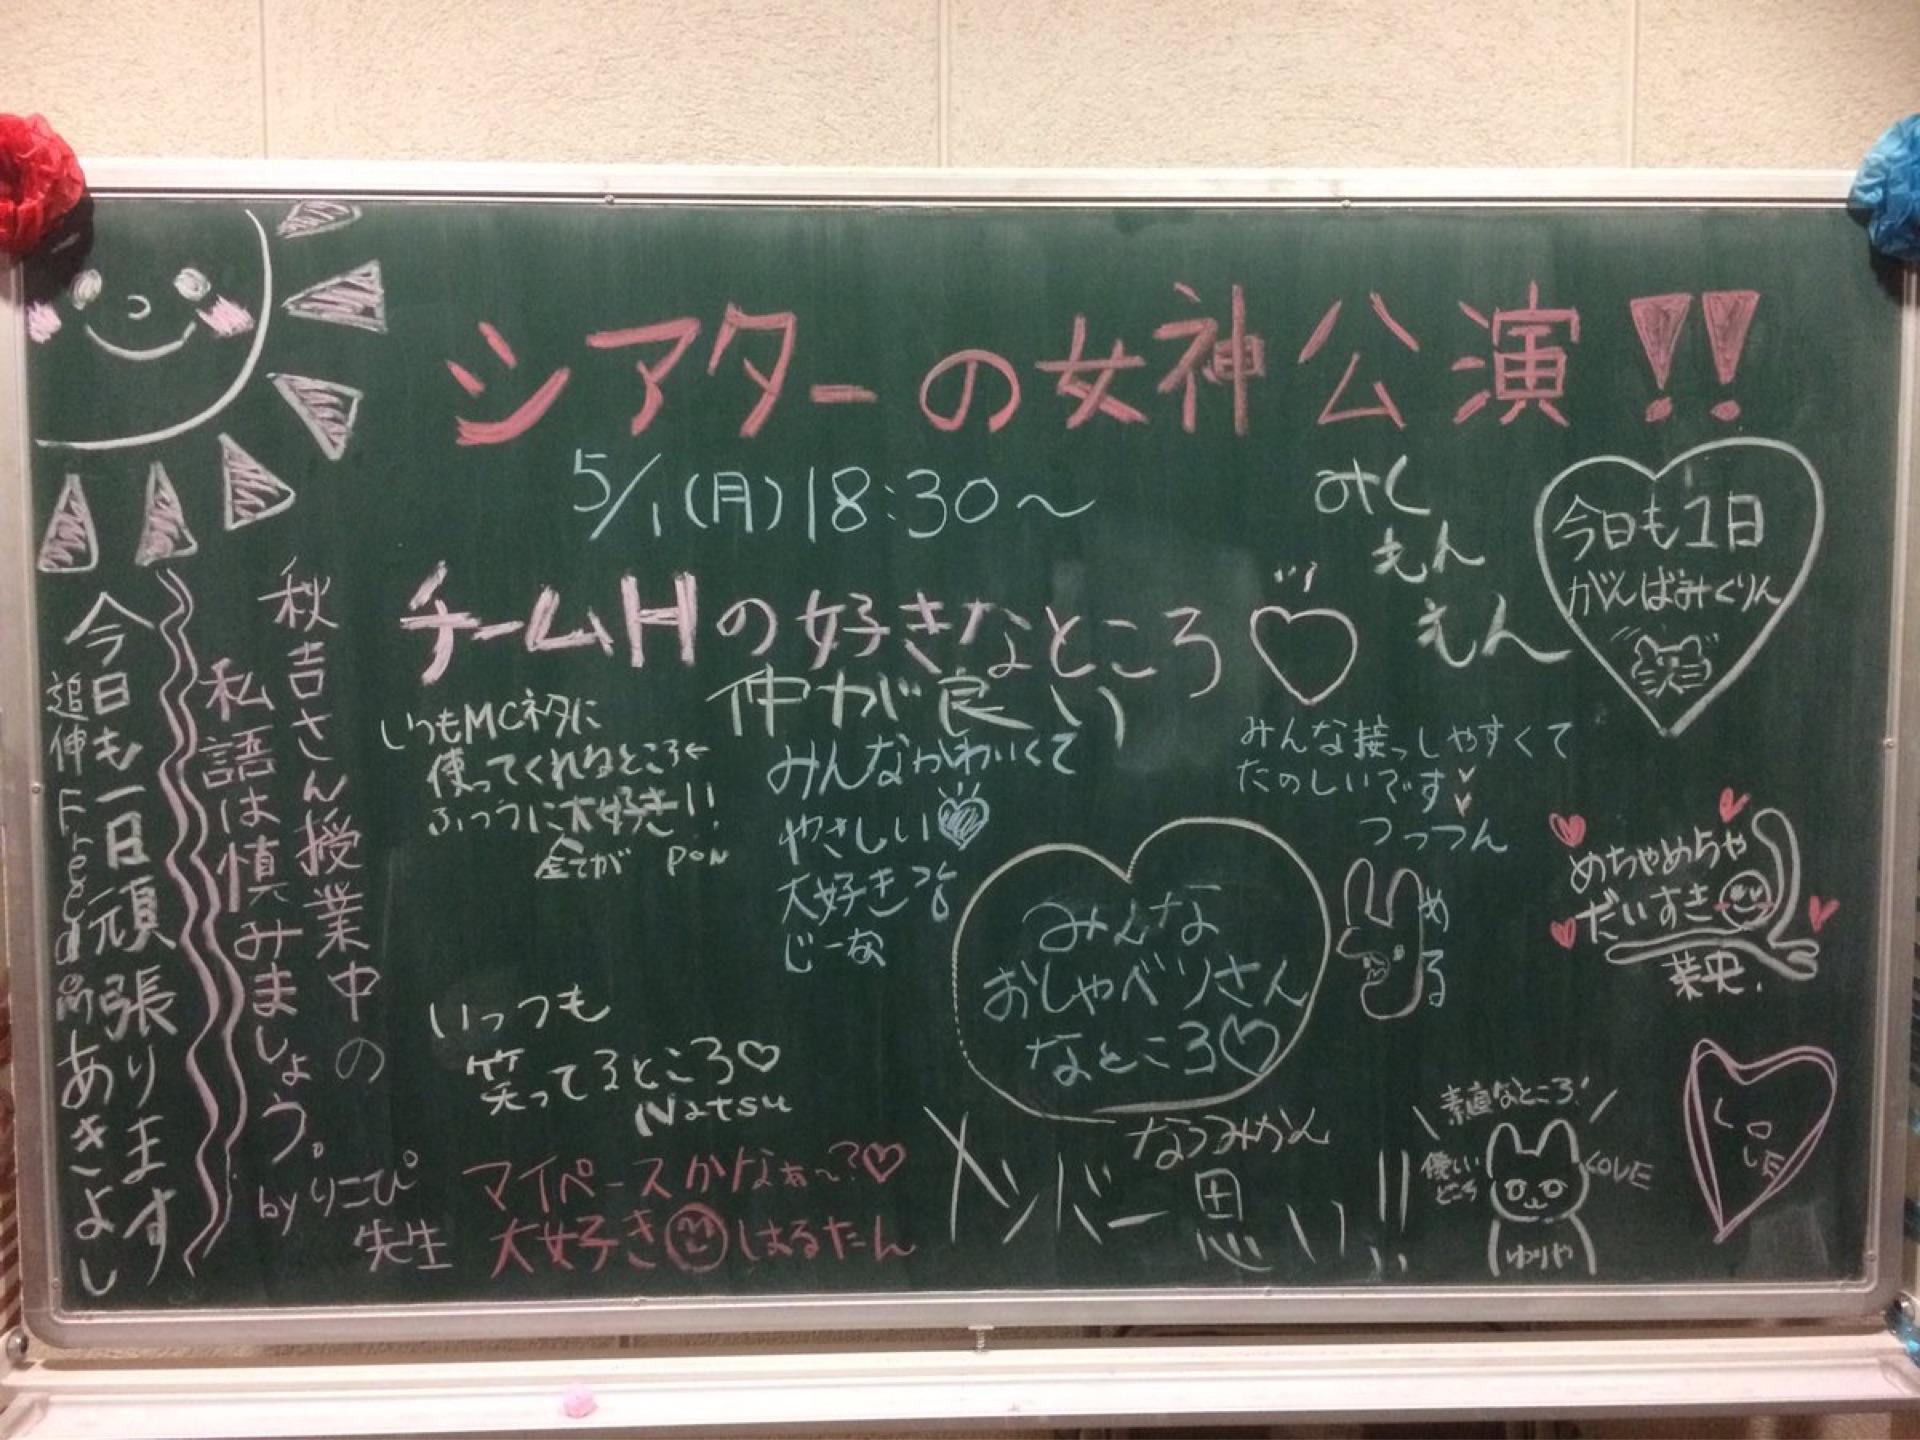 シアターの女神公演!!
5/1(月)18:30〜
チームHの好きなところ♡
仲が良い
みく
えん
えん
今日も1日
がんばみくりん
秋吉さん授業中の
私語は慎みましょう。
byりこぴ
先生
今日も一日頑張ります
追伸Freedomあきよし
いつもMCネタに
使ってくれるところ←
ふつうに大好き!!
全てが PON
みんなかわいくて
やさしい
大好き
じーな
みんな接っしやすくて
たのしいです
つっつん
みんな
おしゃべりさん
なところ♡
める
めちゃめちゃ
だいすき
菜央.
いっつも
笑ってるところ♡
Natsu
マイペースかなぁ〜?♡
大好き はるたん
なつみかん
メンバー思い!!
素直なところ!
優しい
ところ
LOVE
ゆりや